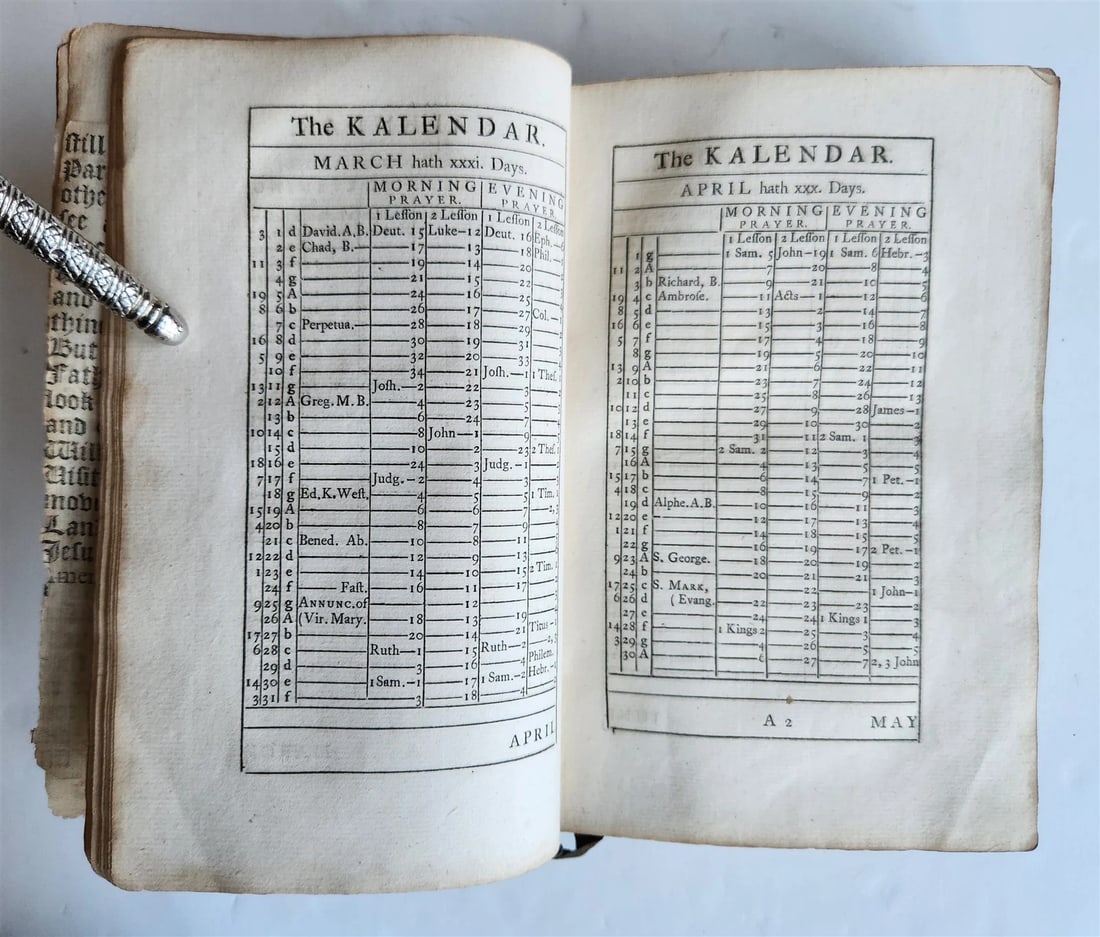 ſtill
Par
othe
ſee
and
thin
But
Fath
look
and
Will
Viſit
mov
Lan
Jeſu
The KALENDAR.
MARCH hath xxxi. Days.
MORNING PRAYER. EVENING PRAYER.
1 Leſſon 2 Leſſon 1 Leſſon 2 Leſſon
3 1 d David.A.B. Deut. 15 Luke—12 Deut. 16 Eph.—6
2 e Chad, B. 17 13 18 Phil.
11 3 f 19 14 20
4 g 21 15 22
19 5 A 24 16
8 6 b 26 17 27 Col.—1
7 c Perpetua. 28 18 29
16 8 d 30 19 31
5 9 e 32 20 33
10 f 34 21 Joſh.—1 1 Theſ. 1
13 11 g Joſh.—2 22 3
2 12 A Greg.M.B. 4 23 5
13 b 6 24 7
10 14 c 8 John—1 9
15 d 10 2 23 2 Theſ. 1
18 16 e 24 3 Judg.—1
7 17 f Judg.—2 4 3
18 g Ed.K.Weſt. 4 5 5 1 Tim. 1
15 19 A 6 6 7 2,3
4 20 b 8 7 9
21 c Bened. Ab. 10 8 11
12 22 d 12 9 13
1 23 e 14 10 15 2 Tim. 1
24 f Faſt. 16 11 17
9 25 g ANNUNC.of 12
26 A (Vir. Mary. 18 13 19
17 27 b 20 14 21 Titus—1
6 28 c Ruth—1 15 Ruth—2 2,3
29 d 3 16 4 Philem.
14 30 e 1 Sam.—1 17 1 Sam.—2 Hebr.—1
3 31 f 3 18 4
APRIL
The KALENDAR.
APRIL hath xxx. Days.
MORNING PRAYER. EVENING PRAYER.
1 Leſſon 2 Leſſon 1 Leſſon 2 Leſſon
1 g 1 Sam. 5 John—19 1 Sam. 6 Hebr.—3
11 2 A 7 20 8 4
3 b Richard, B. 9 21 10 5
19 4 c Ambroſe. 11 Acts—1 12 6
8 5 d 13 2 14 7
16 6 e 15 3 16 8
5 7 f 17 4 18 9
8 g 19 5 20 10
13 9 A 21 6 22 11
2 10 b 23 7 24 12
11 c 25 8 26 13
10 12 d 27 9 28 James—1
13 e 29 10 30 2
18 14 f 31 11 2 Sam. 1 3
7 15 g 2 Sam. 2 12 3 4
16 A 4 13 5 5
15 17 b 6 14 7 1 Pet.—1
4 18 c 8 15 9 2
19 d Alphe.A.B. 10 16 11 3
12 20 e 12 17 13 4
1 21 f 14 18 15 5
22 g 16 19 17 2 Pet.—1
9 23 A S. George. 18 20 19 2
24 b 20 21 21 3
17 25 c S. MARK, 1 John—1
6 26 d (Evang. 22 22 23 2
27 e 24 23 1 Kings 1 3
14 28 f 1 Kings 2 25 3 4
3 29 g 4 26 5 5
30 A 6 27 7 2, 3 John
A 2 MAY